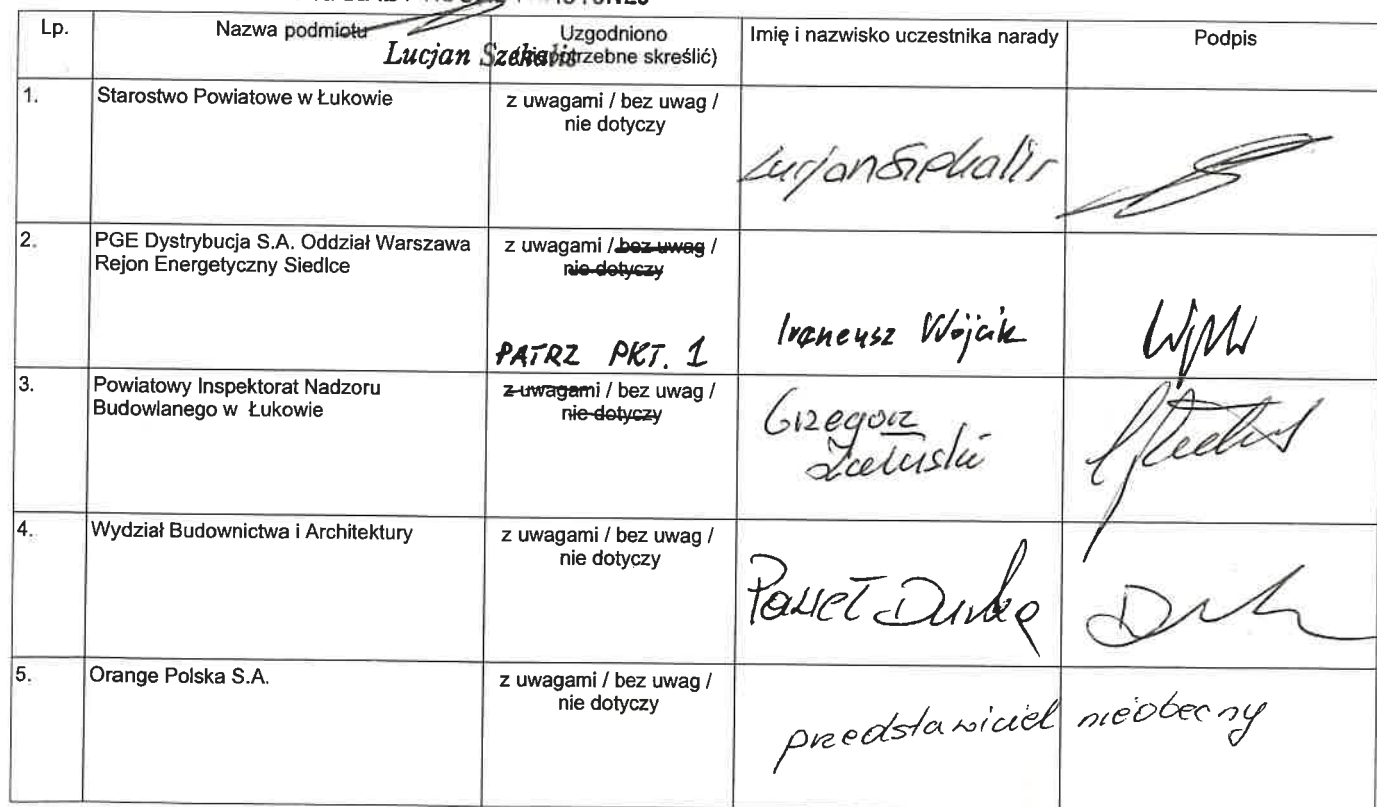 Lp.
Nazwa podmiotu
Uzgodniono
(niepotrzebne skreślić)
Imię i nazwisko uczestnika narady
Podpis
Lucjan Szekalis
1.
Starostwo Powiatowe w Łukowie
z uwagami / bez uwag /
nie dotyczy
Lucjan Szekalis
2.
PGE Dystrybucja S.A. Oddział Warszawa
Rejon Energetyczny Siedlce
z uwagami / bez uwag /
nie dotyczy
PATRZ PKT. 1
Ireneusz Wójcik
3.
Powiatowy Inspektorat Nadzoru
Budowlanego w Łukowie
z uwagami / bez uwag /
nie dotyczy
Grzegorz
Załuski
4.
Wydział Budownictwa i Architektury
z uwagami / bez uwag /
nie dotyczy
Paweł
5.
Orange Polska S.A.
z uwagami / bez uwag /
nie dotyczy
przedstawiciel nieobecny